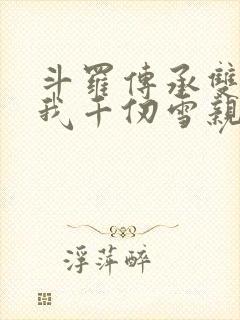 斗羅傳承雙
我千仞雪親
浮萍醉